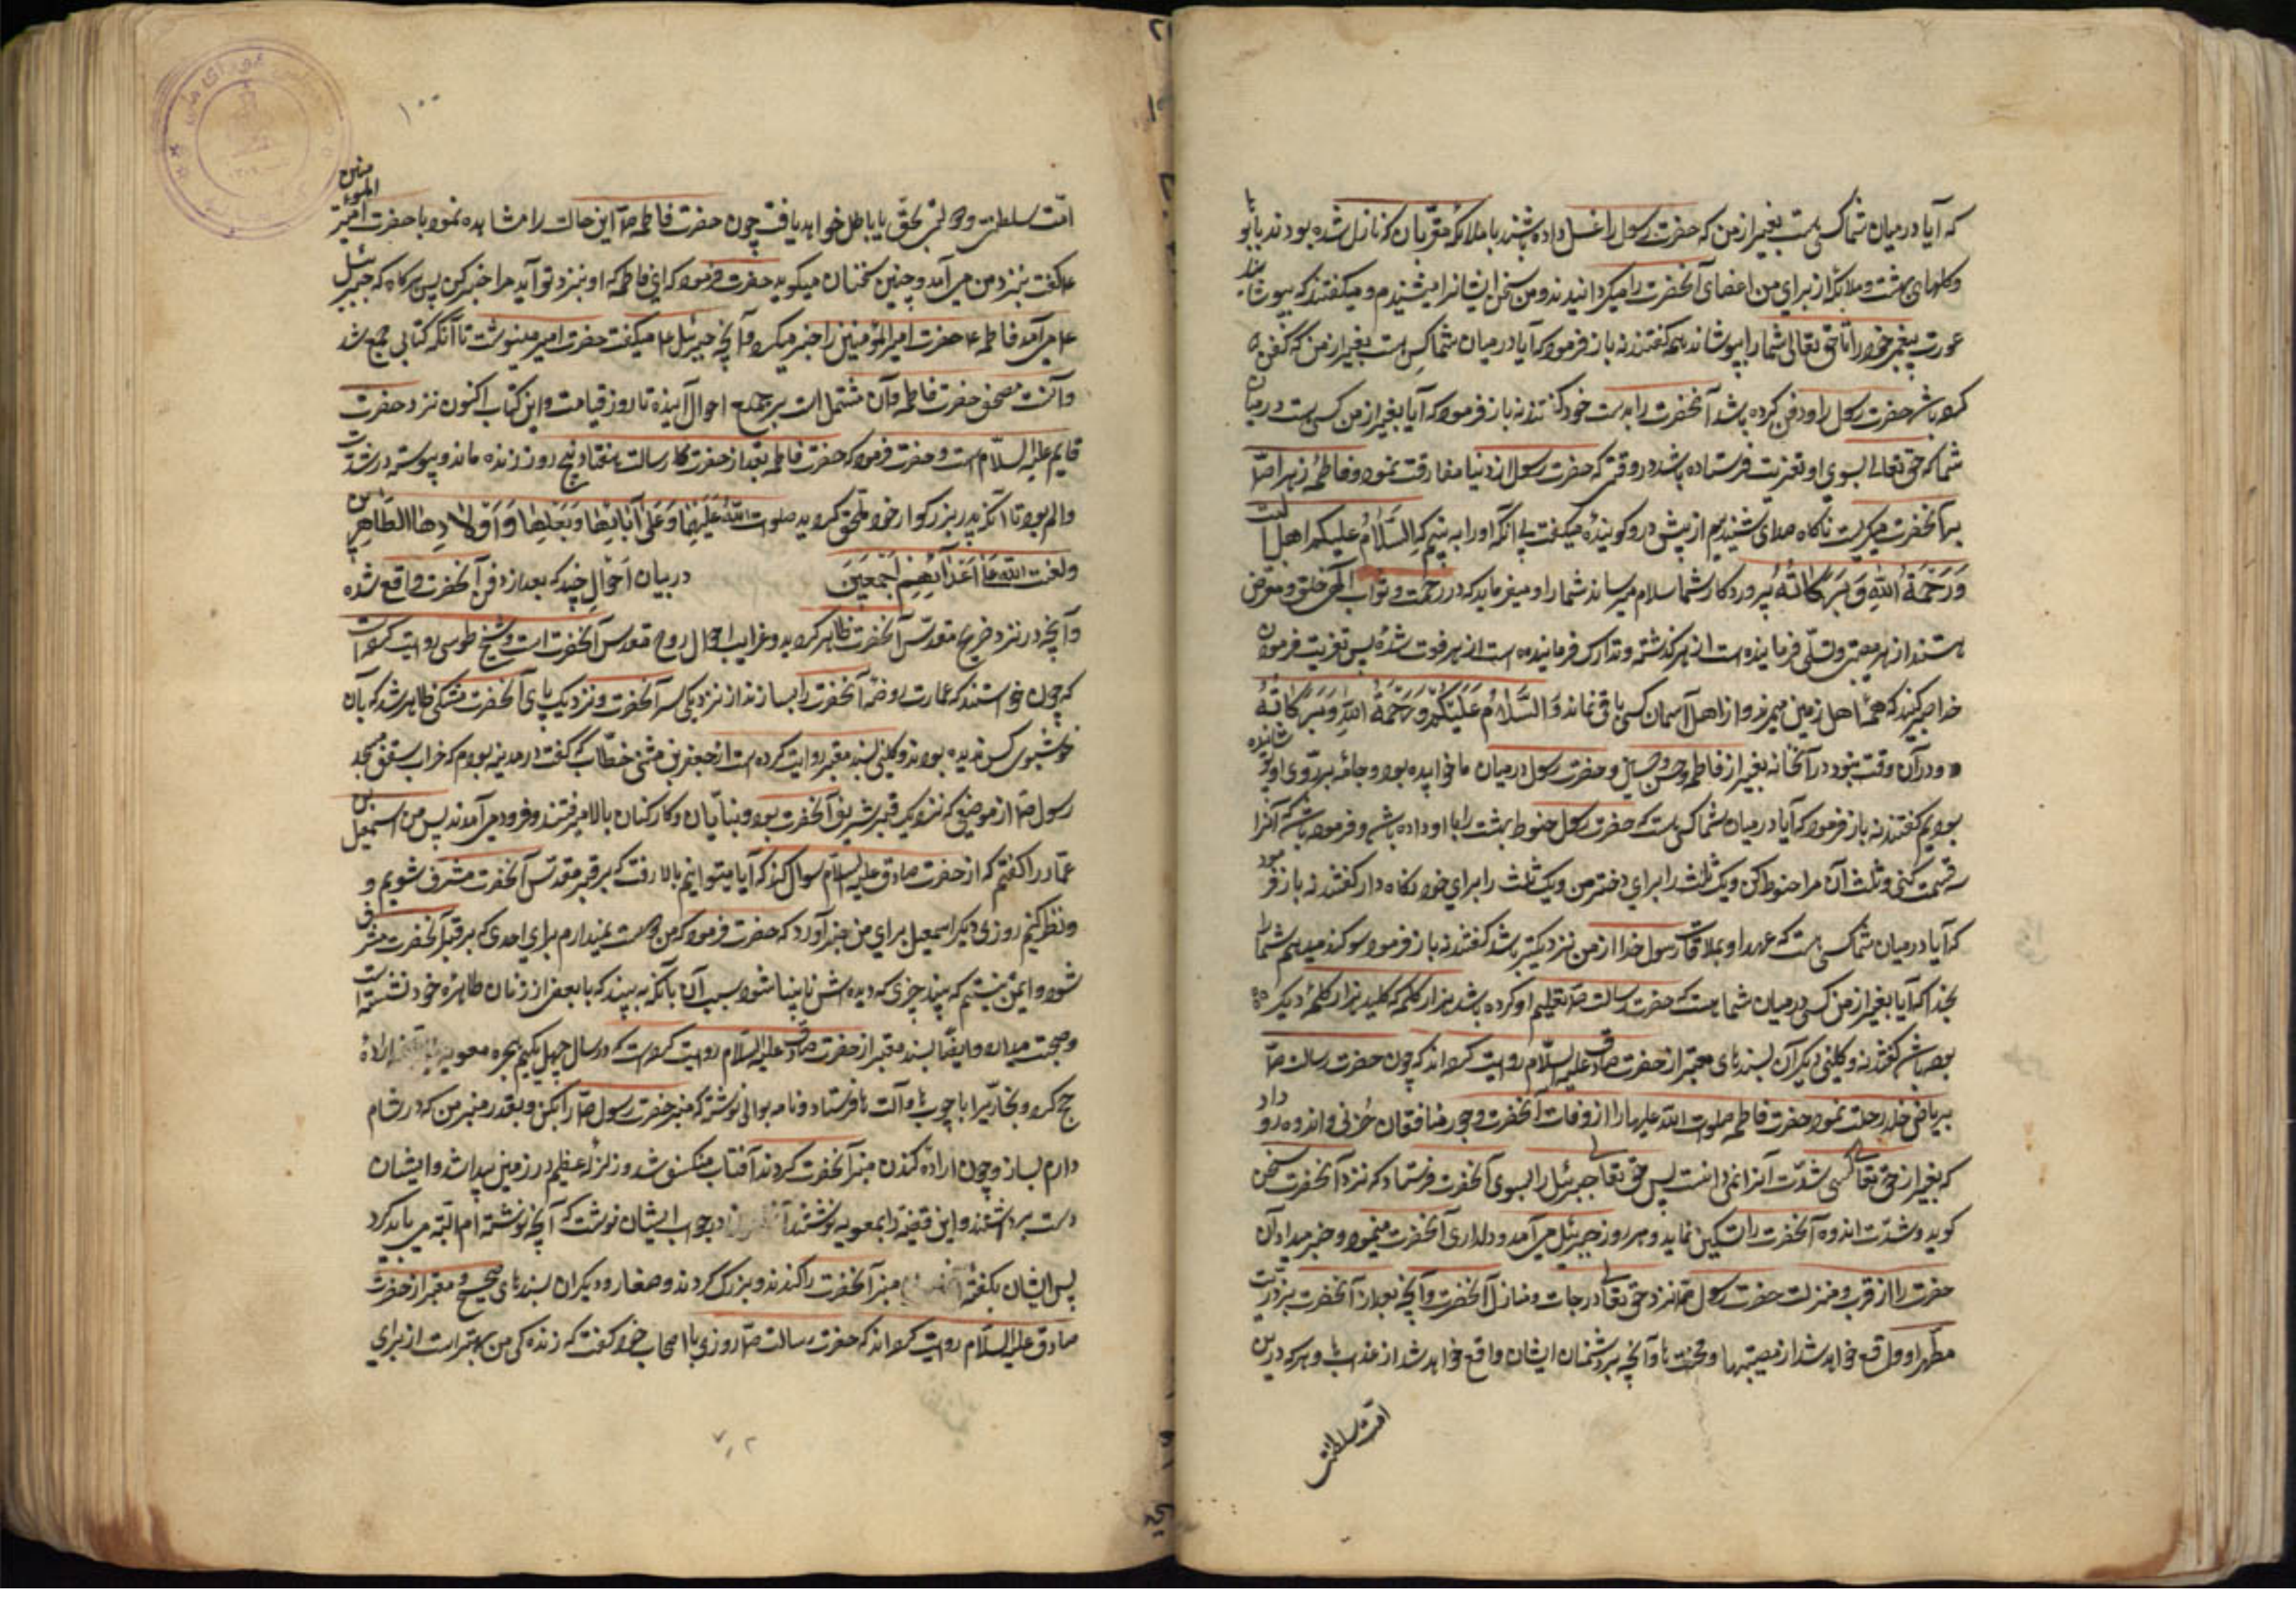 که آیا در میان شما کسی هست بغیر از من که حضرت رسول را غسل داده باشند با ملائکه مقربان که نازل شده بودند با بو
و کلهای بهشت و ملائکه از برای من اعضای آنحضرت را میکردانیدند و من سخن ایشانرا میشنیدم و میکفتند که بپوشانید
عورت پیغمبر خود را تا حق تعالی شما را بپوشاند همه کفتند نه باز فرمود که آیا در میان شما کسی هست بغیر از من که کفن
کرده باشد حضرت رسول را و دفن کرده باشد آنحضرت را بدست خود کفتند نه باز فرمود که آیا بغیر از من کسی هست در میان
شما که حق تعالی بسوی او تعزیت فرستاده باشد در وقتی که حضرت رسول از دنیا مفارقت نمود و فاطمه زهرا ص
بر آنحضرت میکریست ناکاه صدای شنیدیم از پیش در و کوینده میکفت بی آنکه او را به بینیم که السلام علیکم اهل البیت
ورحمة الله وبرکاته پروردکار شما سلام میرساند شما را و میفرماید که در رحمت و ثواب الهی خلف و عوض
هستند از هر مصیبتی و تسلی فرماینده است از هر کذشته و تدارک فرماینده است از هر فوت شده پس تعزیت فرموده
خدا صبر کنید که همه اهل زمین میمیرند و از اهل آسمان کسی باقی نماند والسلام علیکم ورحمة الله وبرکاته
و در آن وقت نبود در آنخانه بغیر از فاطمه و حسن و حسین و حضرت رسول در میان ما خوابیده بود و جامه بر روی او پوشانیده
بودیم کفتند نه باز فرمود که آیا در میان شما کسی هست که حضرت رسول حنوط بهشت را با او داده باشد و فرموده باشد که آنرا
سه قسمت کنی و ثلث آن مرا حنوط کن و یک ثلث را برای دختر من و یک ثلث را برای خود نکاه دار کفتند نه باز فرمود
که آیا در میان شما کسی هست که عهد او بملاقات رسول خدا از من نزدیکتر باشد کفتند نه باز فرمود سوکند میدهم شما را
بخدا که آیا بغیر از من کسی در میان شما هست که حضرت رسالت ص تعلیم او کرده باشد هزار کلمه که کلید هزار کلمه دیکر
بوده باشد کفتند نه و کلینی و دیکران بسندهای معتبر از حضرت صادق علیه السلام روایت کرده اند که چون حضرت رسالت ص
بریاض خلد رحلت نمود حضرت فاطمه صلوات الله علیها را از وفات آنحضرت و جور منافقان حزنی و اندوه رو داد
که بغیر از حق تعالی کسی شدت آنرا نمی دانست پس حق تعالی جبرئیل را بسوی آنحضرت فرستاد که نزد آنحضرت سخن
کوید و شدت اندوه آنحضرت را تسکین نماید و هر روز جبرئیل می آمد و دلداری آنحضرت مینمود و خبر میداد آن
حضرت را از قرب و منزلت حضرت رسول ص نزد حق تعالی و درجات و منازل آنحضرت و آنچه بعد از آنحضرت بر ذریت
مطهر او واقع خواهد شد از مصیبتها و محنتها و آنچه بر دشمنان ایشان واقع خواهد شد از عذابها و هر که درین
امت سلطنت
۱۰۰
امت سلطنت و دولتی بحق یا باطل خواهد یافت چون حضرت فاطمه ص این حالت را مشاهده نمود با حضرت امیر المومنین
ع کفت نزد من می آمد و چنین سخنان میکوید حضرت فرمود که ای فاطمه که او نزد تو آید مرا خبر کن پس هر کاه که جبرئیل
ع می آمد فاطمه ع حضرت امیر المؤمنین را خبر میکرد و آنچه جبرئیل ع میکفت حضرت امیر مینوشت تا آنکه کتابی جمع شد
و آنست مصحف حضرت فاطمه و آن مشتمل است بر جمیع احوال آینده تا روز قیامت و این کتاب اکنون نزد حضرت
قایم علیه السلام است و حضرت فرمود که حضرت فاطمه بعد از حضرت رسالت هفتاد و پنج روز زنده ماند و پیوسته در شدت
و الم بود تا آنکه به پدر بزرکوار خود ملحق کردید صلوات الله علیها وعلی آبائها وبعلها واولادها الطاهرین
ولعنت الله علی اعدائهم اجمعین در بیان احوال چند که بعد از دفن آنحضرت واقع شده
و آنچه در نزد ضریح مقدس آنحضرت ظاهر کردید و غرایب احوال روح مقدس آنحضرت است و شیخ طوسی روایت کرده است
که چون خواستند که عمارت روضه آنحضرت را بسازند از نزدیکی سر آنحضرت و نزدیک پای آنحضرت مشکی ظاهر شد که بآن
خوشبوی کسی ندیده بود و کلینی بسند معتبر روایت کرده است از جعفر بن مثنی خطاب که کفت در مدینه بودم که خراب سقف مسجد
رسول ص از موضعی که نزدیک قبر شریف آنحضرت بود و بنایان و کارکنان بالا میرفتند و فرود می آمدند پس من اسمعیل بن
عمار را کفتم که از حضرت صادق علیه السلام سوال کند که آیا میتوانیم بالا رفت که بر قبر مقدس آنحضرت مشرف شویم و
و نظر کنیم روزی دیکر اسمعیل برای من خبر آورد که حضرت فرمود که من دوست نمیدارم برای احدی که بر قبر آنحضرت مشرف
شود و ایمن نیستم که ببیند چیزی که دیده اش نابینا شود بسبب آن یا آنکه به بیند که با بعضی از زنان طاهره خود نشسته است
و صحبت میدارد و ایضا بسند معتبر از حضرت صادق علیه السلام روایت کرده است که در سال چهل یکم هجره معویه اراده
حج کرد و نجاریرا با چوب ها و آلت ها فرستاد و نامه بوالی نوشت که منبر حضرت رسول ص را بکن و بقدر منبر من که در شام
دارم بساز و چون اراده کندن منبر آنحضرت کردند آفتاب منکسف شد و زلزله عظیم در زمین پیدا شد و ایشان
دست برداشتند و این قضیه را بمعویه نوشتند در جواب ایشان نوشت که آنچه نوشته ام البته می باید کرد
پس ایشان بکفته منبر آنحضرت را کندند و بزرک کردند و صفار و دیکران بسندهای صحیح و معتبر از حضرت
صادق علیه السلام روایت کرده اند که حضرت رسالت ص روزی با اصحاب خود کفت که زنده کی من بهتر است از برای